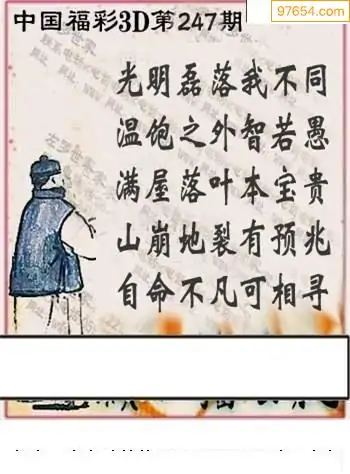 97654.com
中国福彩3D第247期
光明磊落我不同
温饱之外智若愚
满屋落叶本宝贵
山崩地裂有预兆
自命不凡可相寻